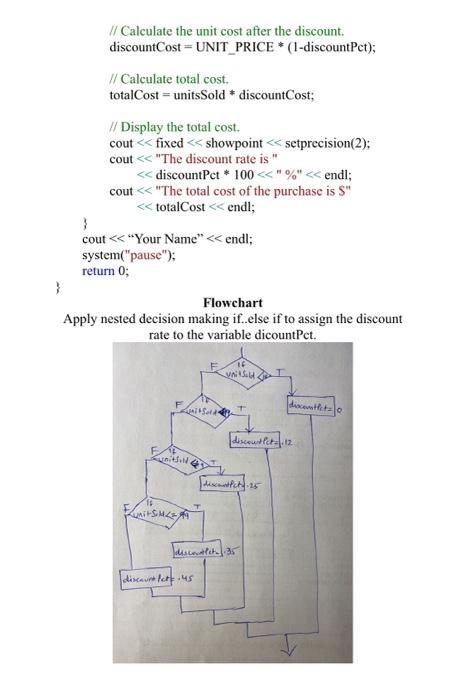 // Calculate the unit cost after the discount.
discountCost = UNIT_PRICE * (1-discountPct);
// Calculate total cost.
totalCost = unitsSold * discountCost;
// Display the total cost.
cout << fixed << showpoint << setprecision(2);
cout << "The discount rate is "
<< discountPct * 100 << " %" << endl;
cout << "The total cost of the purchase is $"
<< totalCost << endl;
}
cout << “Your Name” << endl;
system("pause");
return 0;
}
Flowchart
Apply nested decision making if..else if to assign the discount
rate to the variable dicountPct.
If
F unitSold < T
discountPct= 0
If
F unitSold T
discountPct= .12
If
F unitSold T
discountPct= .25
If
F unitSold<= 99 T
discountPct= .35
discountPct= .45